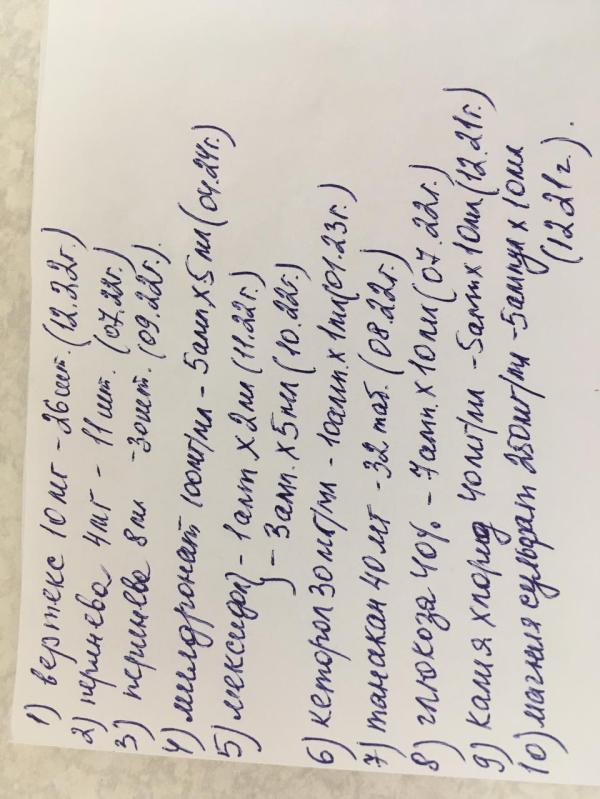 1) вертекс 10 мг - 26 шт. (12.22г.)
2) перинева 4мг - 11 шт. (07.22г.)
3) перинева 8мл - 30шт. (09.22г.).
4) милдронат 100мг/мл - 5амп x 5мл (04.24г.)
5) мексидол} - 1амп. x 2мл (11.22г.)
- 3амп. x 5мл (10.22г.)
6) кеторол 30мг/мл - 10амп. x 1мл (01.23г.)
7) танакан 40мг - 32 таб. (08.22г.)
8) глюкоза 40% - 7амп. x 10мл (07.22г.)
9) калия хлорид 40мг/мл - 5амп x 10мл (12.21г.)
10) магния сульфат 250мг/мл - 5ампул x 10мл
(12 21г.).